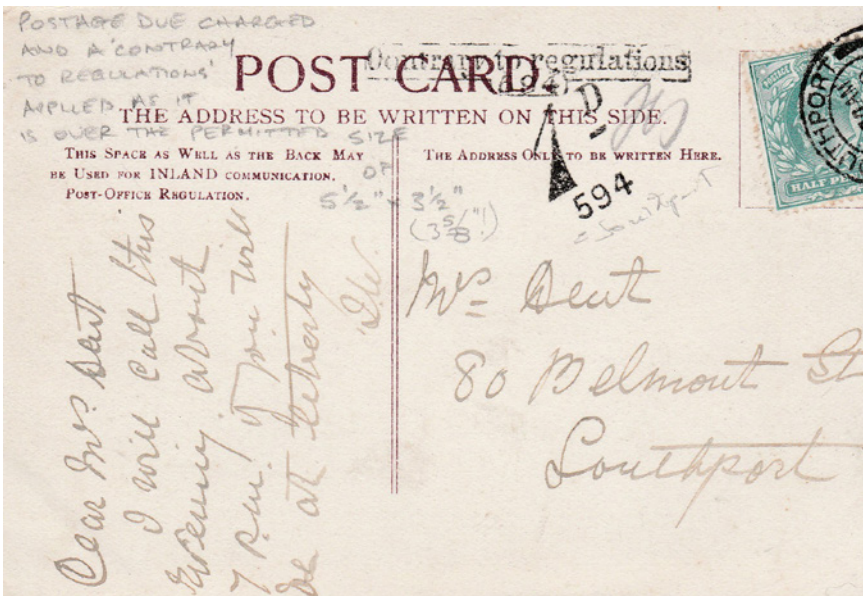 POSTAGE DUE CHARGED
AND A 'CONTRARY
TO REGULATIONS'
APPLIED AS IT
IS OVER THE PERMITTED SIZE
OF
5½" x 3½"
(3⅝"!)
Contrary to regulations
(594)
POST CARD.
THE ADDRESS TO BE WRITTEN ON THIS SIDE.
THIS SPACE AS WELL AS THE BACK MAY
BE USED FOR INLAND COMMUNICATION.
POST-OFFICE REGULATION.
THE ADDRESS ONLY TO BE WRITTEN HERE.
1 D
594
= Southport
POSTAGE
HALF PE
SOUTHPORT
Dear Mrs Dent
I will call this
Evening about
7 p.m. if you will
be at liberty
Mrs Dent
80 Belmont St
Southport